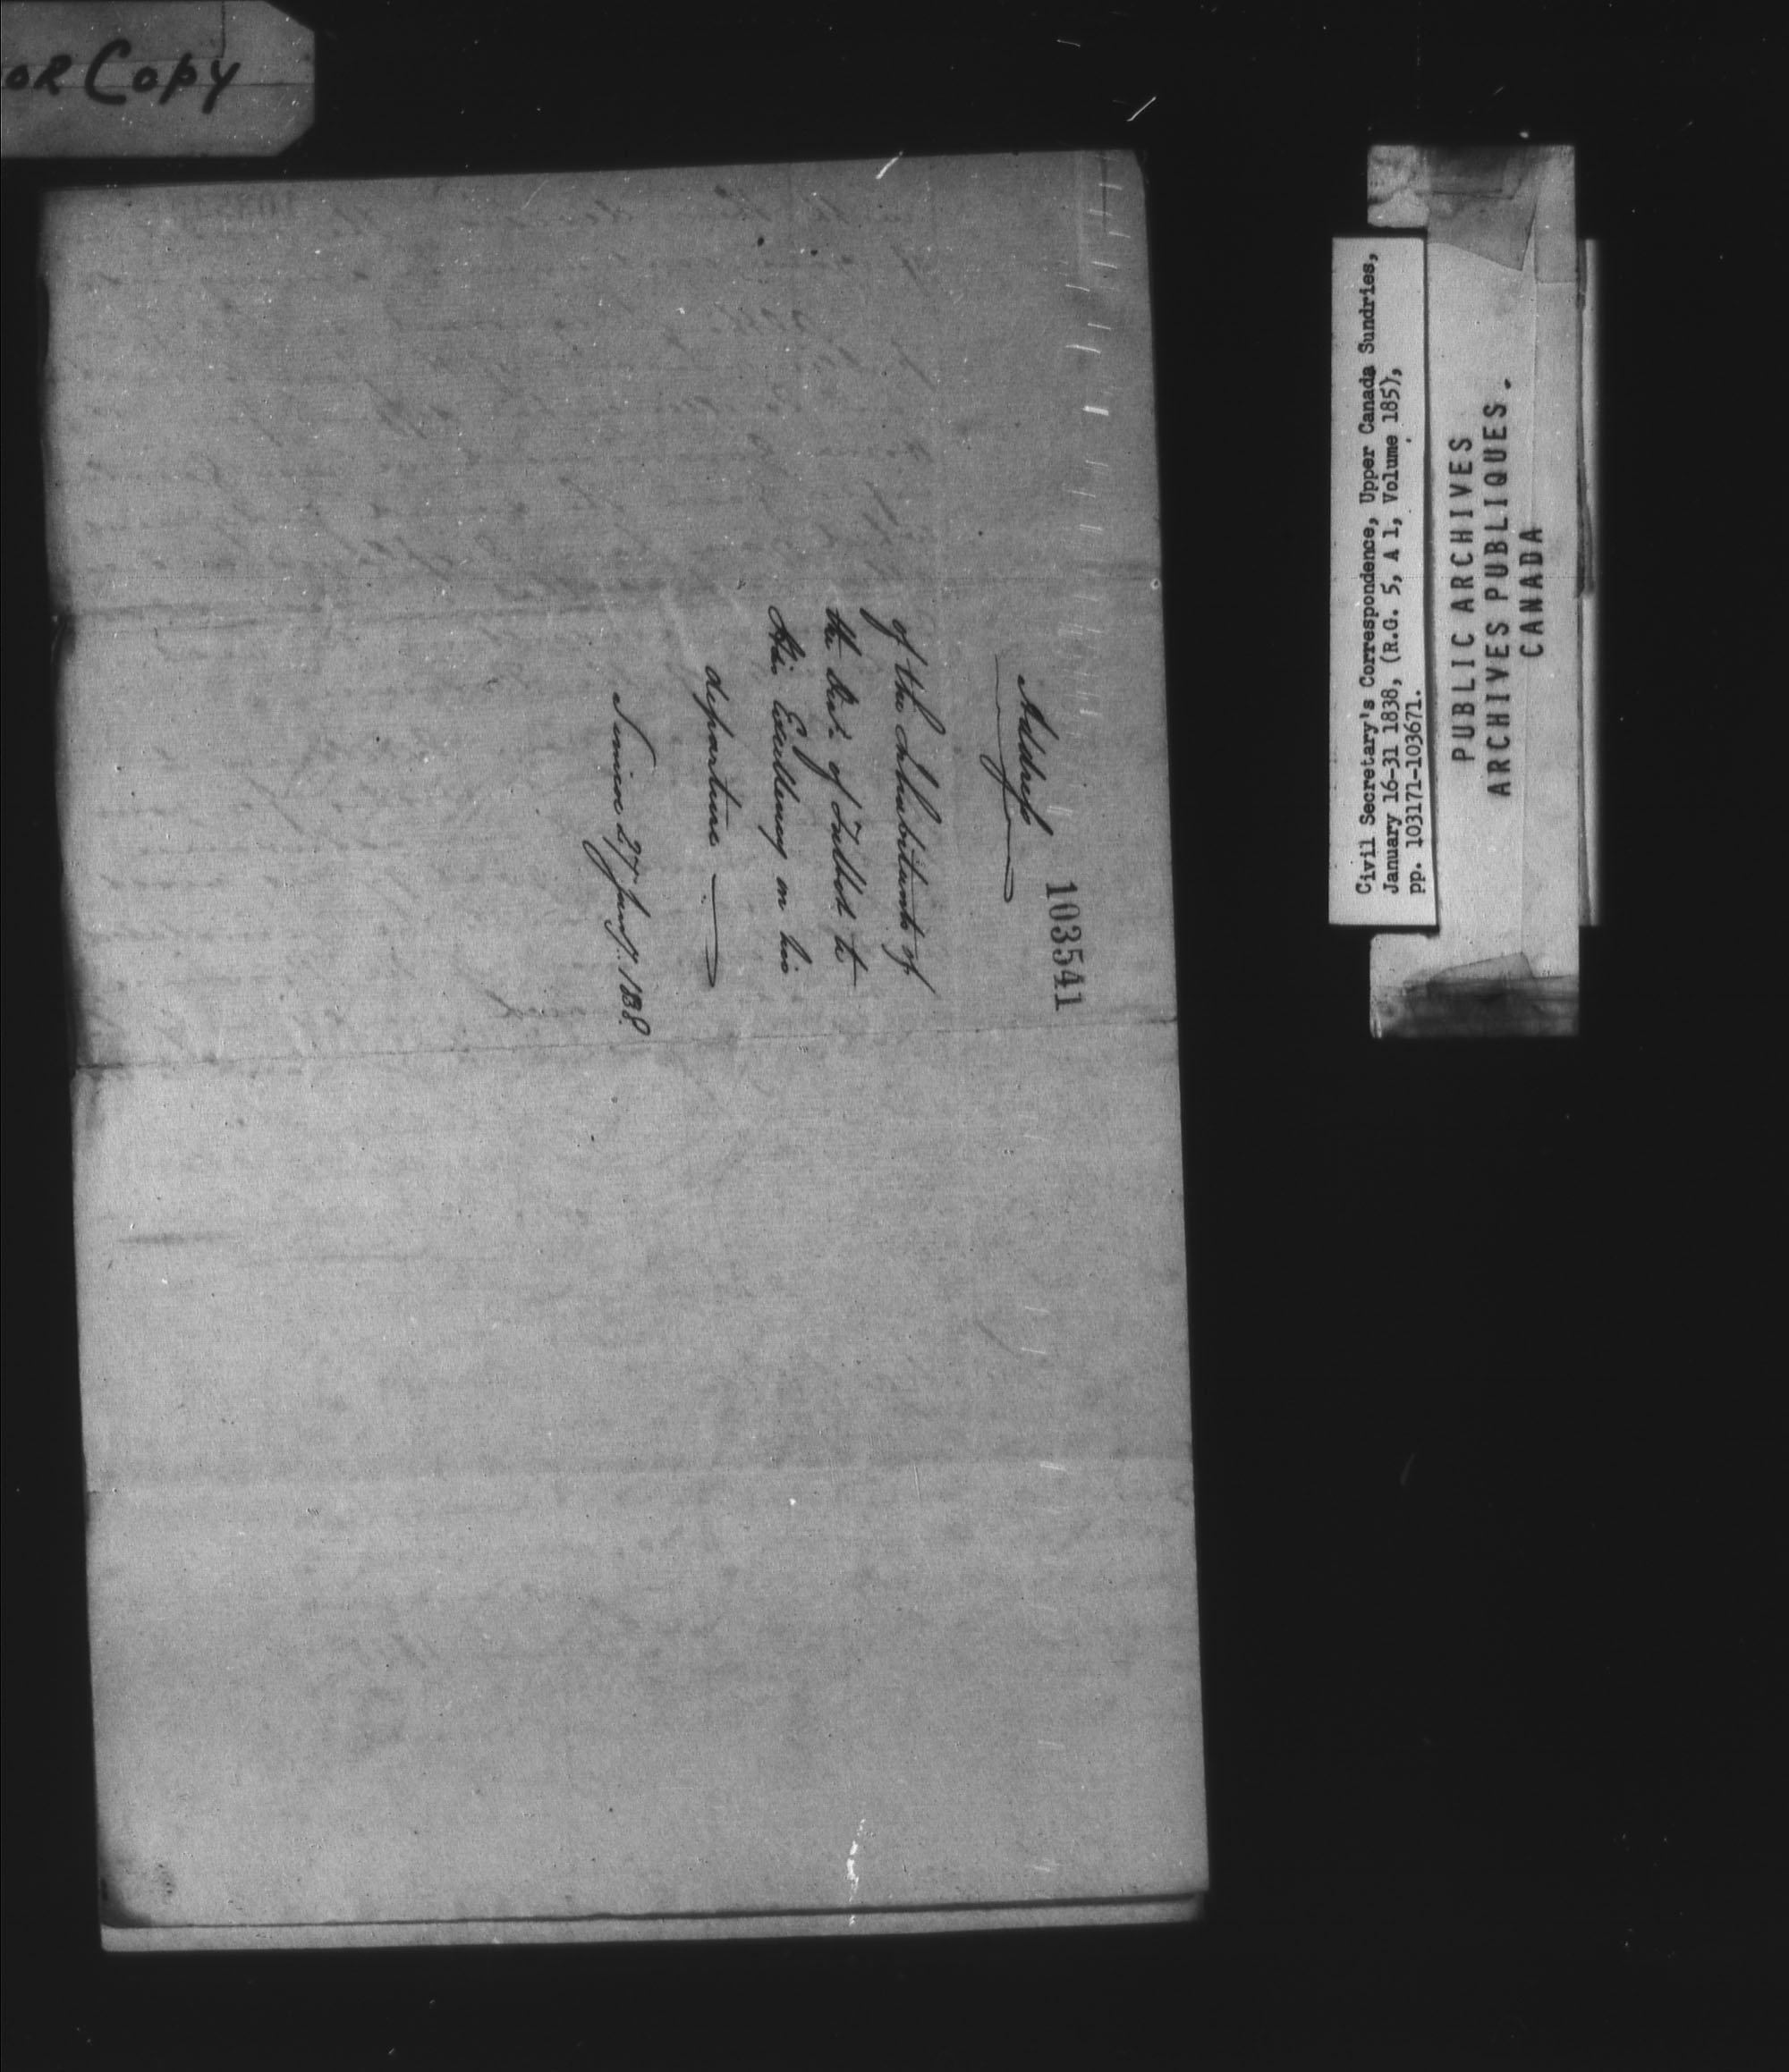 OR Copy
103541
Address
of the Inhabitants of
the Dist. of Talbot to
His Excellency on his
departure —
Simcoe 27 Jany. 1838.
Civil Secretary's Correspondence, Upper Canada Sundries,
January 16-31 1838, (R.G. 5, A 1, Volume 185),
pp. 103171-103671.
PUBLIC ARCHIVES
ARCHIVES PUBLIQUES.
CANADA